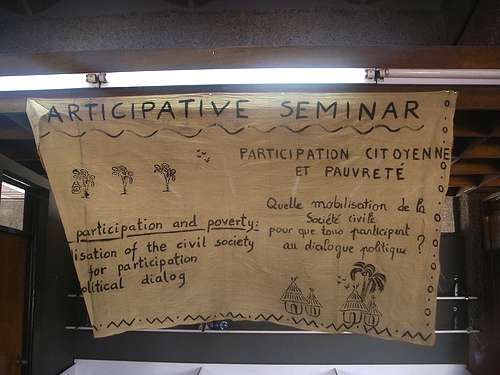 ARTICIPATIVE SEMINAR
PARTICIPATION CITOYENNE
ET PAUVRETÉ
participation and poverty:
isation of the civil society
for participation
olitical dialog
Quelle mobilisation de la
Société civile
pour que tous participent
au dialogue politique ?